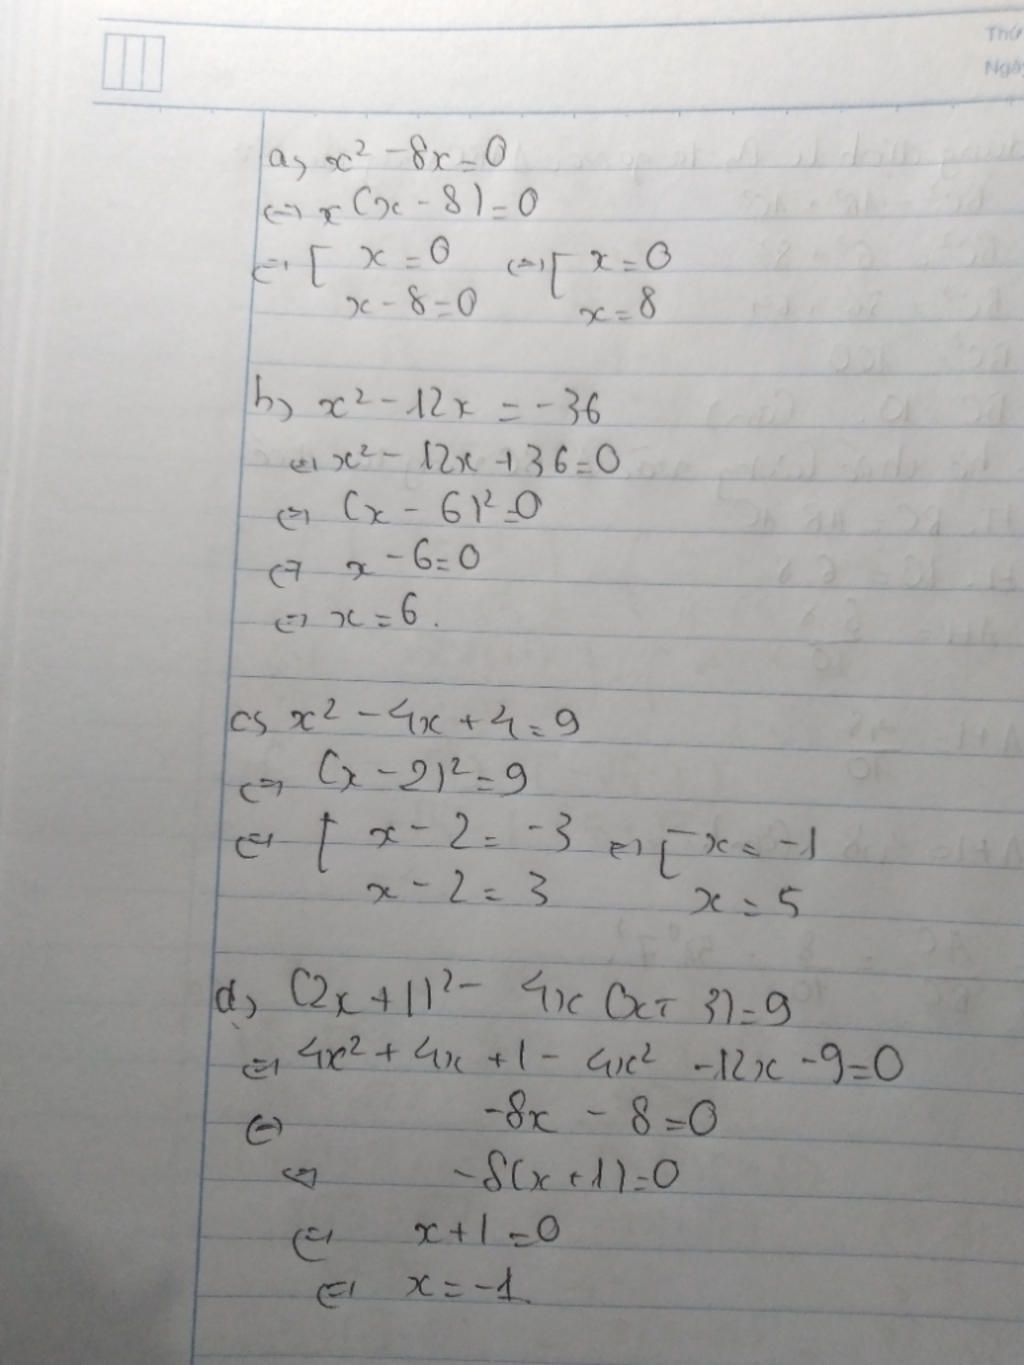 Thứ
Ngày
a, x² - 8x = 0
⇔ x (x - 8) = 0
⇔ [ x = 0 ⇔ [ x = 0
x - 8 = 0 x = 8
b, x² - 12x = -36
⇔ x² - 12x + 36 = 0
⇔ (x - 6)² = 0
⇔ x - 6 = 0
⇔ x = 6.
c, x² - 4x + 4 = 9
⇔ (x - 2)² = 9
⇔ [ x - 2 = -3 ⇔ [ x = -1
x - 2 = 3 x = 5
d, (2x + 1)² - 4x (x + 3) = 9
⇔ 4x² + 4x + 1 - 4x² - 12x - 9 = 0
⇔ -8x - 8 = 0
⇔ -8(x + 1) = 0
⇔ x + 1 = 0
⇔ x = -1.